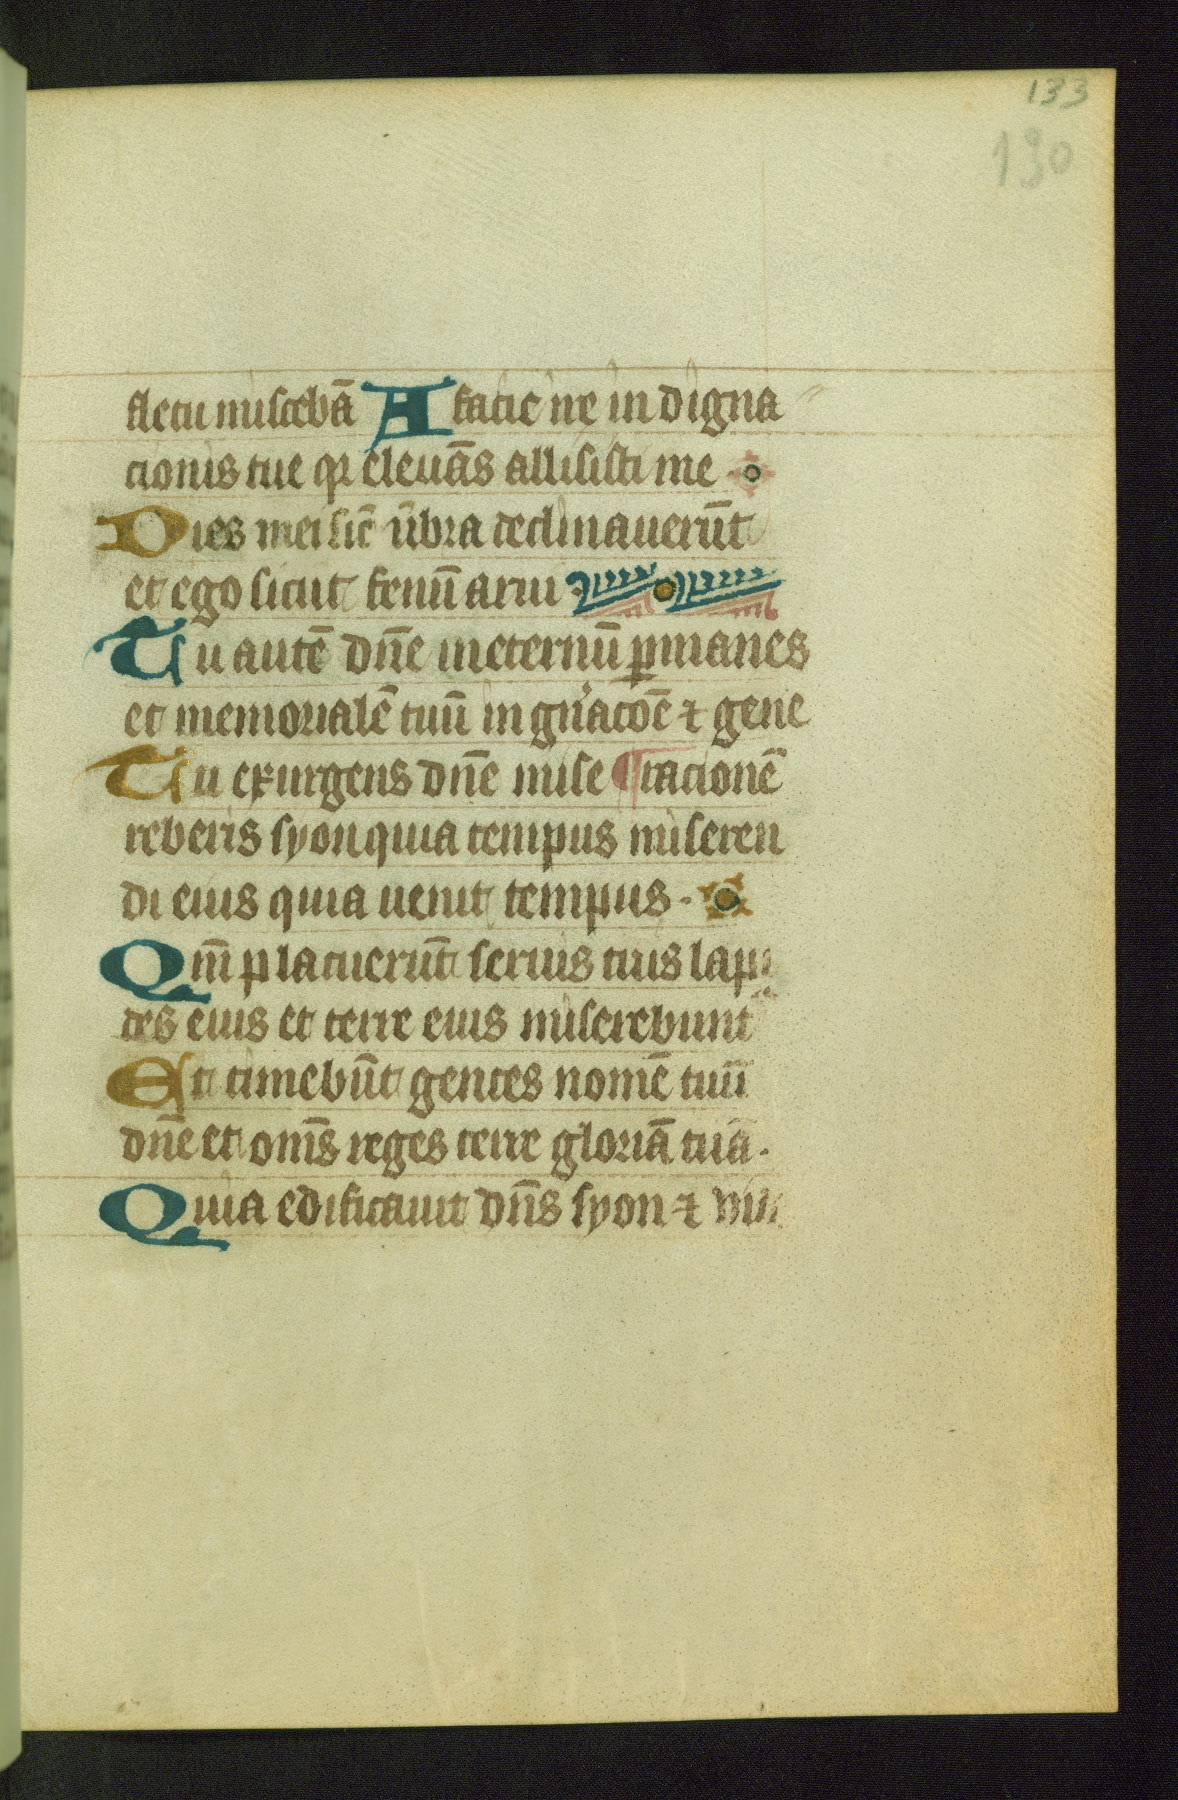 133
130
fletu miscebā A facie ire in digna
cionis tue qr eleuās allisisti me
Dies mei sic̄ ūbra declinauerūt
et ego sicut fenū arui
Tu autē dn̄e ineternū ꝑmanes
et memorialē tuū in gn̄acōe ⁊ gene
Tu exurgens dn̄e mise ¶racionē
reberis syon quia tempus miseren
di eius quia uenit tempus.
Qm̄ placuerūt seruis tuis lapi
des eius et terre eius miserebunt
Et timebūt gentes nomē tuū
dn̄e et om̄s reges terre gloriā tuā.
Quia edificauit dn̄s syon ⁊